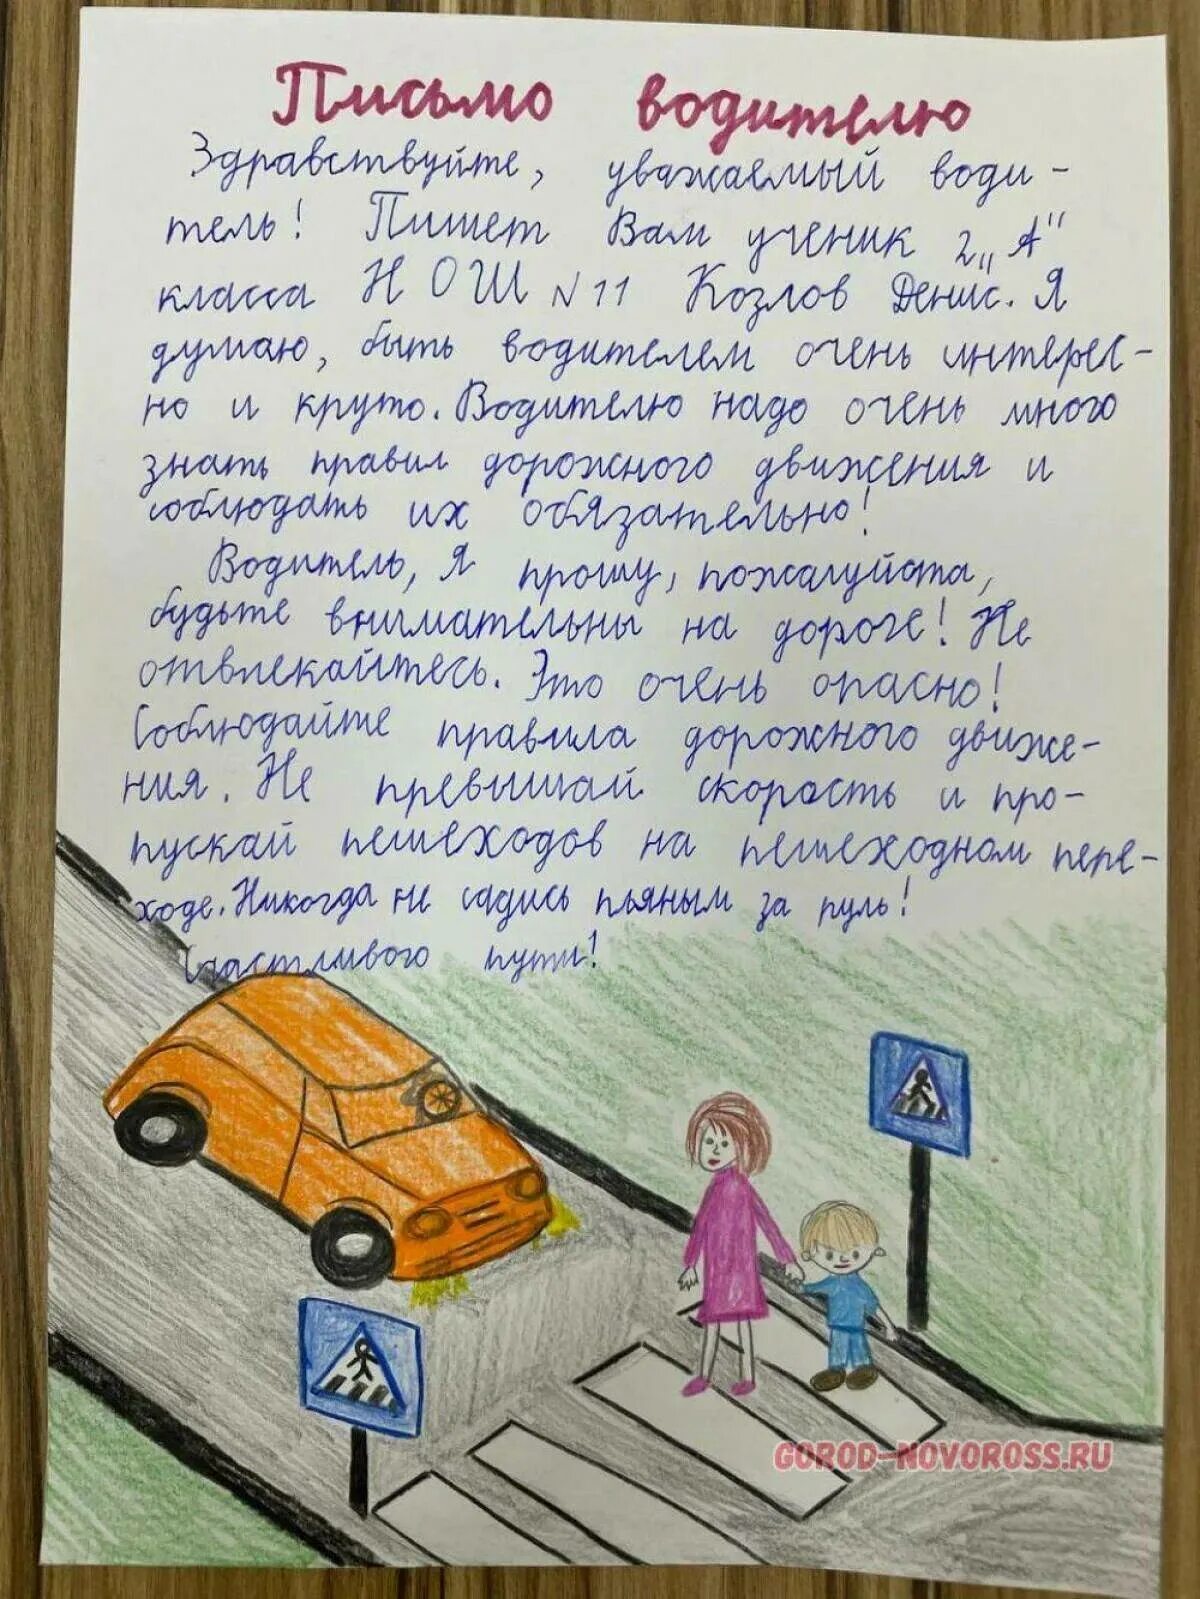 Письмо водителю
Здравствуйте, уважаемый води-
тель! Пишет Вам ученик 2 „А"
класса НОШ №11 Козлов Денис. Я
думаю, быть водителем очень интерес-
но и круто. Водителю надо очень много
знать правил дорожного движения и
соблюдать их обязательно!
Водитель, Я прошу, пожалуйста,
будьте внимательны на дороге! Не
отвлекайтесь. Это очень опасно!
Соблюдайте правила дорожного движе-
ния. Не превышай скорость и про-
пускай пешеходов на пешеходном пере-
ходе. Никогда не садись пьяным за руль!
Счастливого пути!
GOROD-NOVOROSS.RU